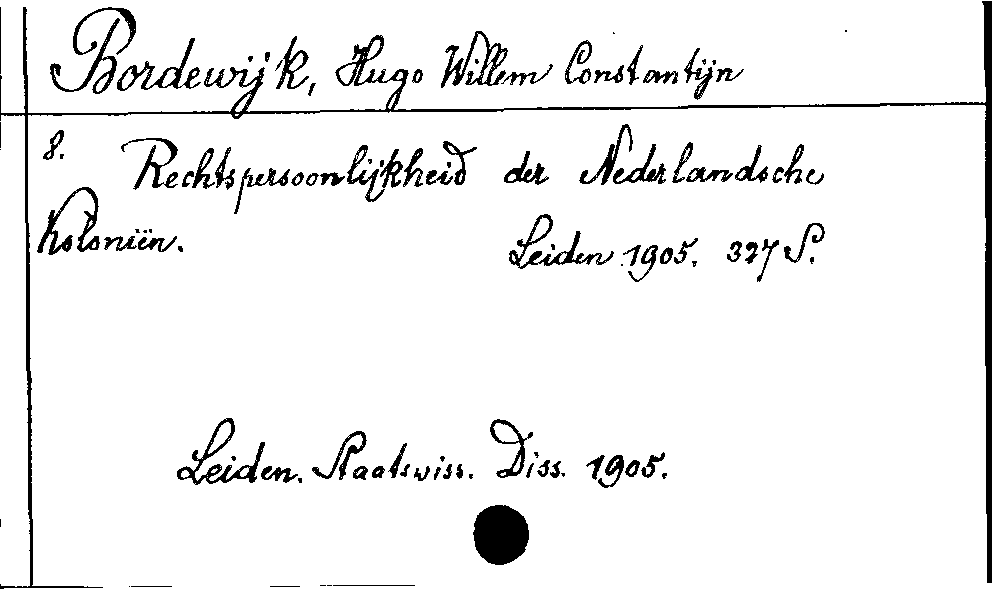 Bordewijk, Hugo Willem Constantijn
8.
Rechtspersoonlijkheid der Nederlandsche
Koloniën. Leiden 1905. 327 S.
Leiden. Staatswiss. Diss. 1905.